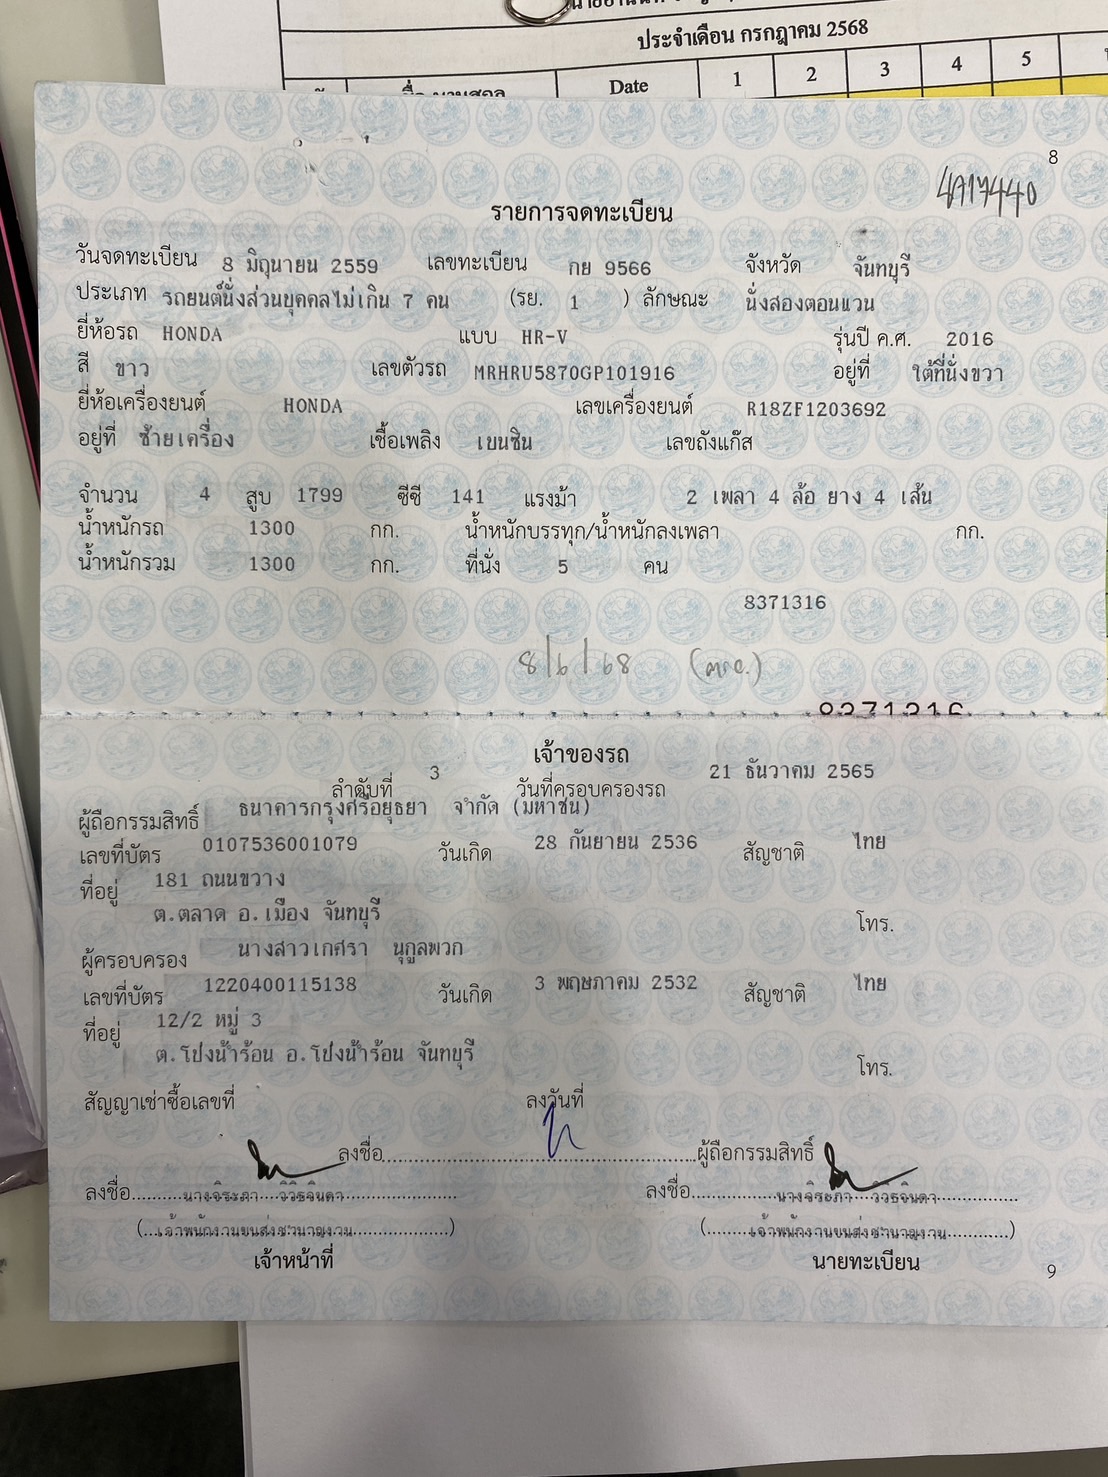 ประจำเดือน กรกฎาคม 2568
Date 1 2 3 4 5
8
4717440
รายการจดทะเบียน
วันจดทะเบียน 8 มิถุนายน 2559 เลขทะเบียน กย 9566 จังหวัด จันทบุรี
ประเภท รถยนต์นั่งส่วนบุคคลไม่เกิน 7 คน (รย. 1 ) ลักษณะ นั่งสองตอนแวน
ยี่ห้อรถ HONDA แบบ HR-V รุ่นปี ค.ศ. 2016
สี ขาว เลขตัวรถ MRHRU5870GP101916 อยู่ที่ ใต้ที่นั่งขวา
ยี่ห้อเครื่องยนต์ HONDA เลขเครื่องยนต์ R18ZF1203692
อยู่ที่ ซ้ายเครื่อง เชื้อเพลิง เบนซิน เลขถังแก๊ส
จำนวน 4 สูบ 1799 ซีซี 141 แรงม้า 2 เพลา 4 ล้อ ยาง 4 เส้น
น้ำหนักรถ 1300 กก. น้ำหนักบรรทุก/น้ำหนักลงเพลา กก.
น้ำหนักรวม 1300 กก. ที่นั่ง 5 คน
8371316
8/6/68
8371316
เจ้าของรถ
ลำดับที่ 3 วันที่ครอบครองรถ 21 ธันวาคม 2565
ผู้ถือกรรมสิทธิ์ ธนาคารกรุงศรีอยุธยา จำกัด (มหาชน)
เลขที่บัตร 0107536001079 วันเกิด 28 กันยายน 2536 สัญชาติ ไทย
ที่อยู่ 181 ถนนขวาง
ต.ตลาด อ.เมือง จันทบุรี โทร.
ผู้ครอบครอง นางสาวเกศรา นุกูลพวก
เลขที่บัตร 1220400115138 วันเกิด 3 พฤษภาคม 2532 สัญชาติ ไทย
ที่อยู่ 12/2 หมู่ 3
ต.โป่งน้ำร้อน อ.โป่งน้ำร้อน จันทบุรี โทร.
สัญญาเช่าซื้อเลขที่ ลงวันที่
ลงชื่อ ผู้ถือกรรมสิทธิ์
ลงชื่อ นางจิระภา วิวิธจินดา ลงชื่อ นางจิระภา วิวิธจินดา
(เจ้าพนักงานขนส่งชำนาญงาน) (เจ้าพนักงานขนส่งชำนาญงาน)
เจ้าหน้าที่ นายทะเบียน
9